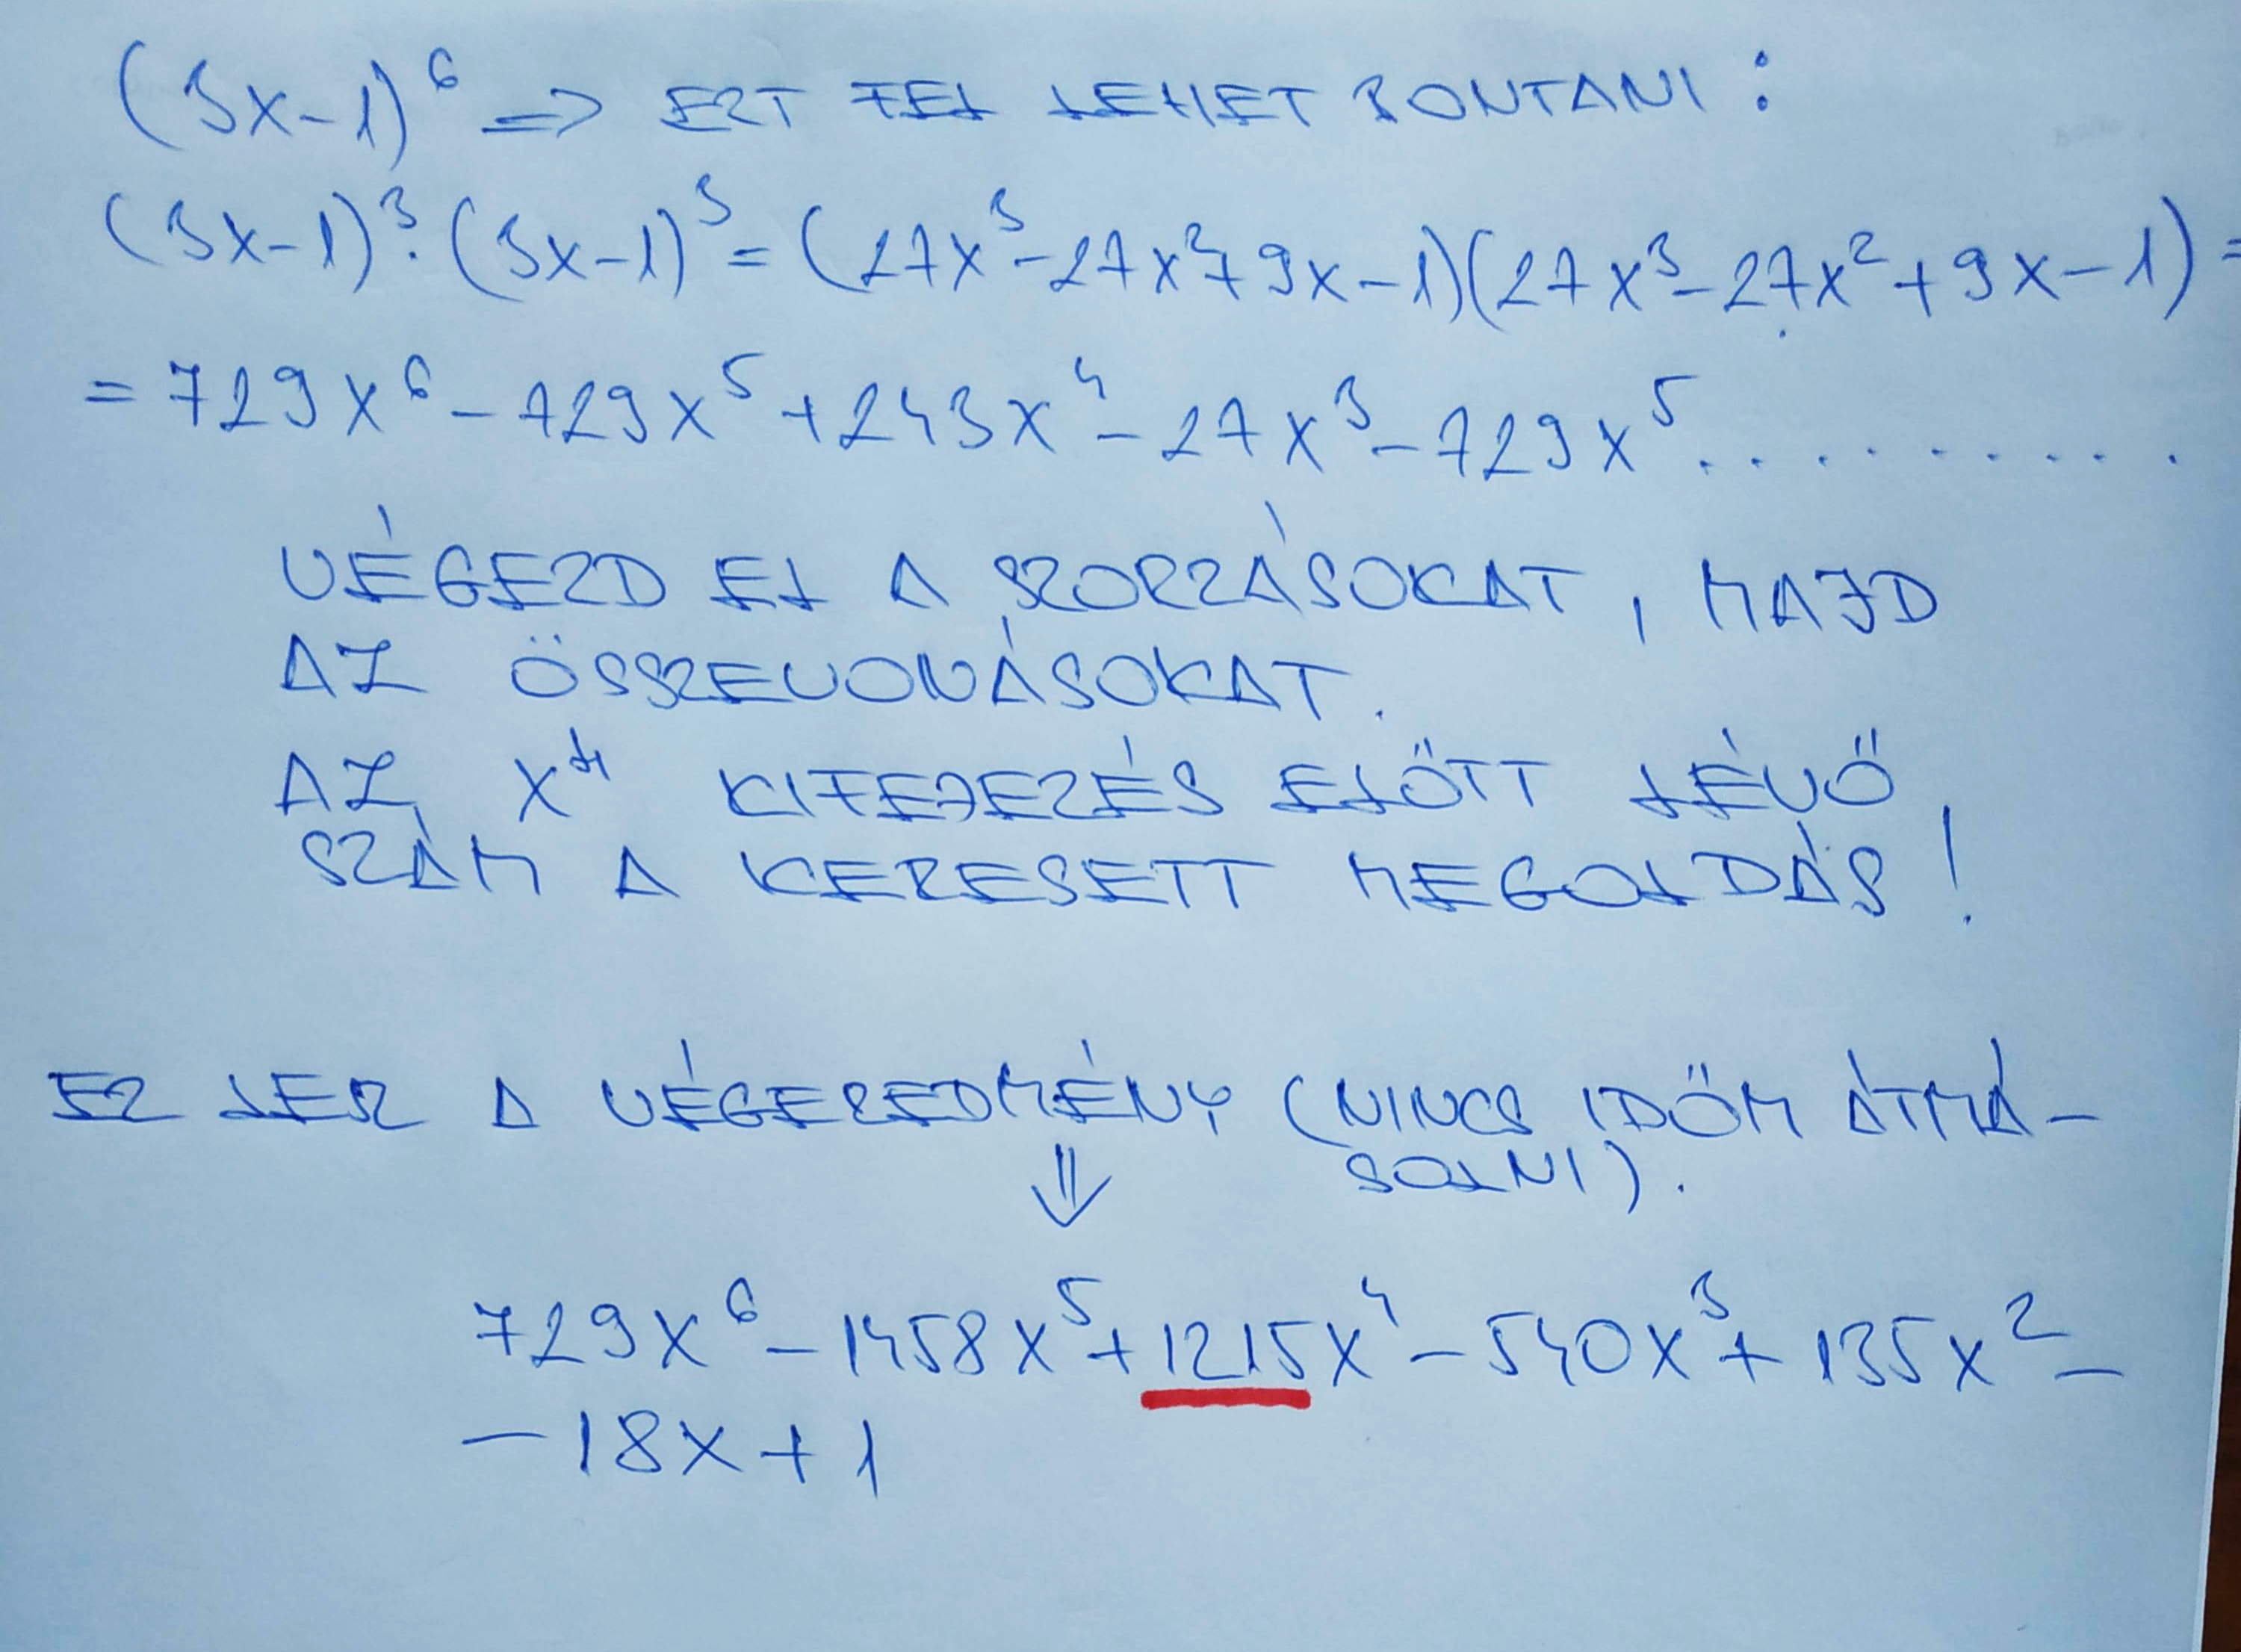 (3x-1)⁶ => EZT FEL LEHET BONTANI:
(3x-1)³·(3x-1)³=(27x³-27x²+9x-1)(27x³-27x²+9x-1)=
=729x⁶-729x⁵+243x⁴-27x³-729x⁵..........
VÉGEZD EL A SZORZÁSOKAT, MAJD
AZ ÖSSZEVONÁSOKAT.
AZ x⁴ KIFEJEZÉS ELŐTT LÉVŐ
SZÁM A KERESETT MEGOLDÁS!
EZ LESZ A VÉGEREDMÉNY (NINCS IDŐM ÁTMÁ-
SOLNI).
⇓
729x⁶-1458x⁵+1215x⁴-540x³+135x²-
-18x+1